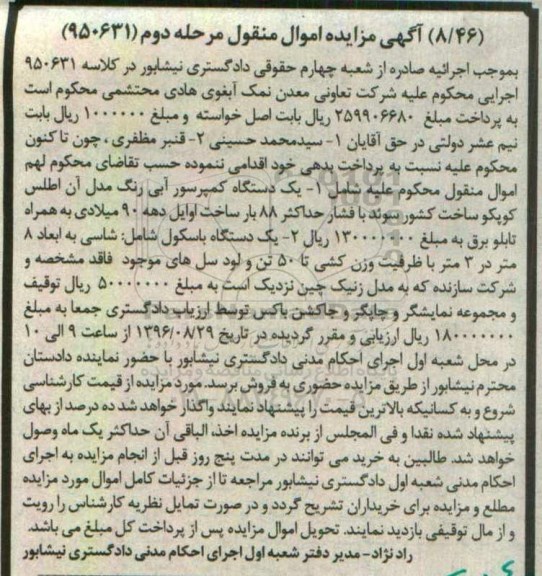 (۸/۴۶) آگهی مزایده اموال منقول مرحله دوم (۹۵۰۶۳۱)
بموجب اجرائیه صادره از شعبه چهارم حقوقی دادگستری نیشابور در کلاسه ۹۵۰۶۳۱
اجرایی محکوم علیه شرکت تعاونی معدن نمک آبغوی هادی محتشمی محکوم است
به پرداخت مبلغ ۲۵۹۹۰۶۶۸۰ ریال بابت اصل خواسته و مبلغ ۱۰۰۰۰۰۰ ریال بابت
نیم عشر دولتی در حق آقایان ۱- سیدمحمد حسینی ۲- قنبر مظفری ، چون تا کنون
محکوم علیه نسبت به پرداخت بدهی خود اقدامی ننموده حسب تقاضای محکوم لهم
اموال منقول محکوم علیه شامل ۱- یک دستگاه کمپرسور آبی رنگ مدل آن اطلس
کوپکو ساخت کشور سوئد با فشار حداکثر ۸۸ بار ساخت اوایل دهه ۹۰ میلادی به همراه
تابلو برق به مبلغ ۱۳۰۰۰۰۰۰۰ ریال ۲- یک دستگاه باسکول شامل: شاسی به ابعاد ۸
متر در ۳ متر با ظرفیت وزن کشی تا ۵۰ تن و لود سل های موجود فاقد مشخصه و
شرکت سازنده که به مدل زنیک چین نزدیک است به مبلغ ۵۰۰۰۰۰۰۰ ریال توقیف
و مجموعه نمایشگر و چاپگر و جاکشن باکس توسط ارزیاب دادگستری جمعا به مبلغ
۱۸۰۰۰۰۰۰۰ ریال ارزیابی و مقرر گردیده در تاریخ ۱۳۹۶/۰۸/۲۹ از ساعت ۹ الی ۱۰
در محل شعبه اول اجرای احکام مدنی دادگستری نیشابور با حضور نماینده دادستان
محترم نیشابور از طریق مزایده حضوری به فروش برسد. مورد مزایده از قیمت کارشناسی
شروع و به کسانیکه بالاترین قیمت را پیشنهاد نمایند واگذار خواهد شد ده درصد از بهای
پیشنهاد شده نقدا و فی المجلس از برنده مزایده اخذ، الباقی آن حداکثر یک ماه وصول
خواهد شد. طالبین به خرید می توانند در مدت پنج روز قبل از انجام مزایده به اجرای
احکام مدنی شعبه اول دادگستری نیشابور مراجعه تا از جزئیات کامل اموال مورد مزایده
مطلع و مزایده برای خریداران تشریح گردد و در صورت تمایل نظریه کارشناس را رویت
و از مال توقیفی بازدید نمایند. تحویل اموال مزایده پس از پرداخت کل مبلغ می باشد.
راد نژاد- مدیر دفتر شعبه اول اجرای احکام مدنی دادگستری نیشابور